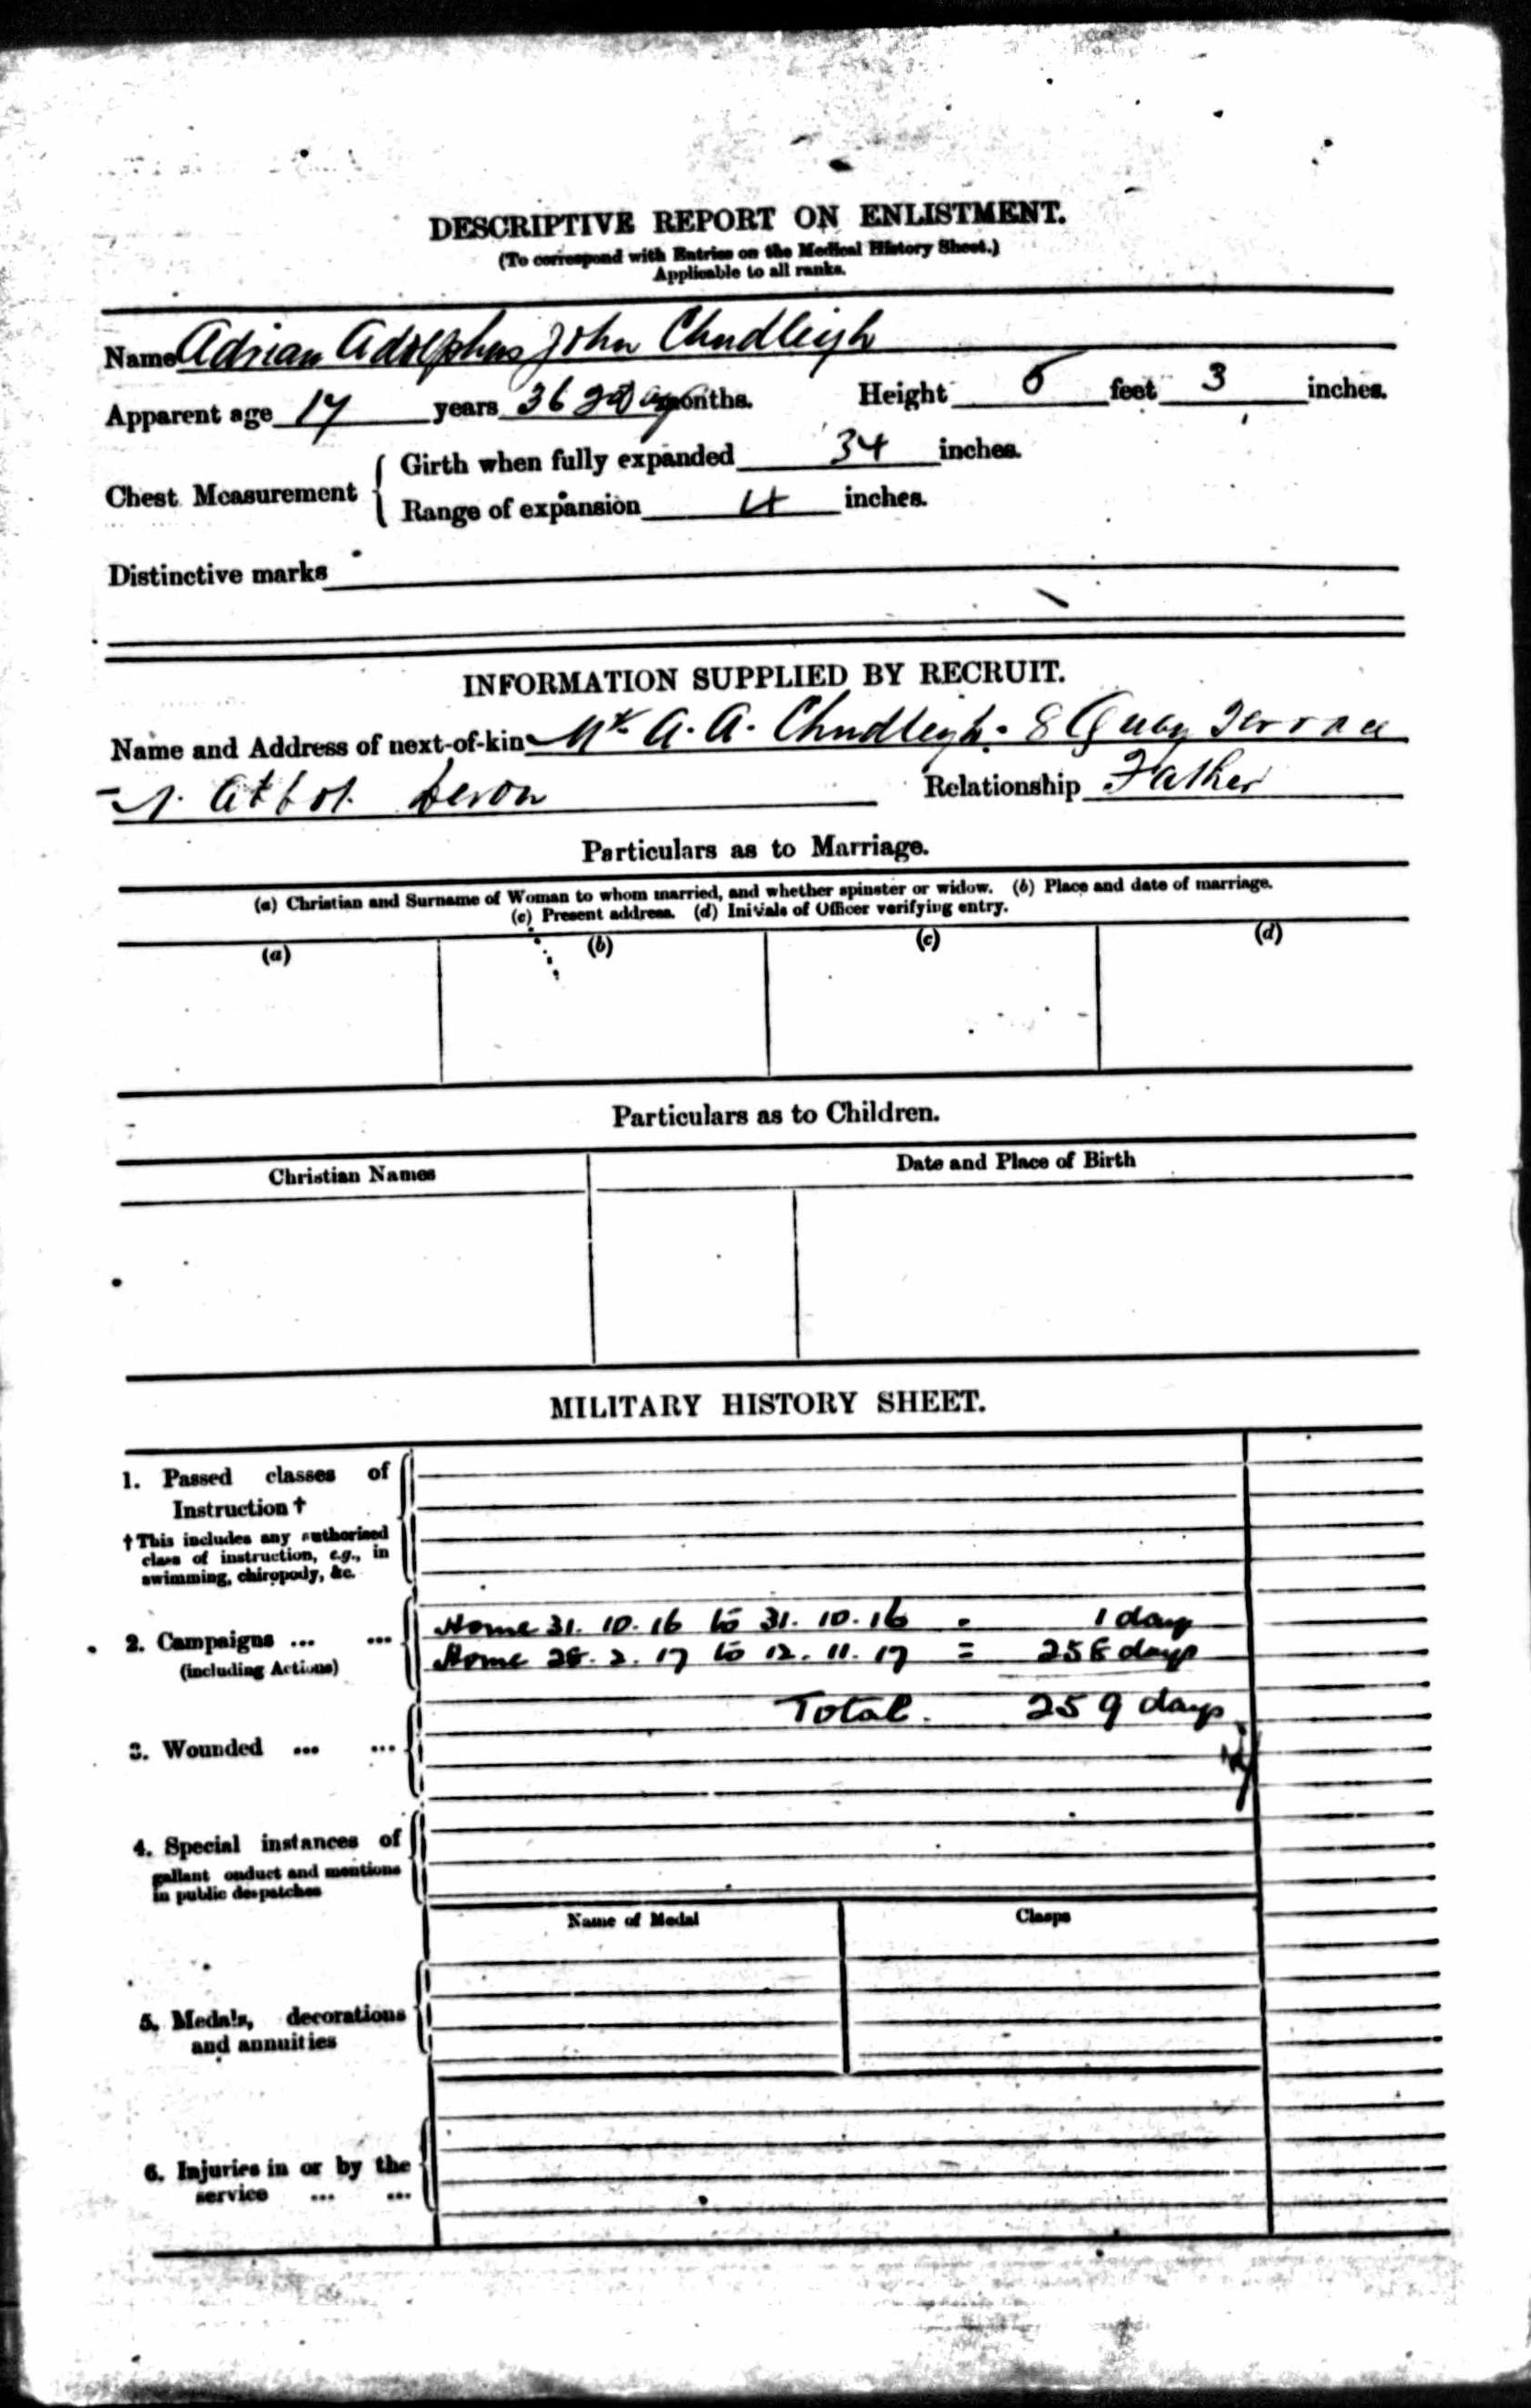 DESCRIPTIVE REPORT ON ENLISTMENT.
(To correspond with Entries on the Medical History Sheet.)
Applicable to all ranks.
Name Adrian Adolphus John Chudleigh
Apparent age 17 years 36 days months. Height 5 feet 3 inches.
Chest Measurement { Girth when fully expanded 34 inches.
Range of expansion 4 inches.
Distinctive marks
INFORMATION SUPPLIED BY RECRUIT.
Name and Address of next-of-kin Mr A. A. Chudleigh. 8 Quay Terrace
N. Abbot. Devon Relationship Father
Particulars as to Marriage.
(a) Christian and Surname of Woman to whom married, and whether spinster or widow. (b) Place and date of marriage.
(c) Present address. (d) Initials of Officer verifying entry.
(a) (b) (c) (d)
Particulars as to Children.
Christian Names Date and Place of Birth
MILITARY HISTORY SHEET.
1. Passed classes of
Instruction †
† This includes any authorised
class of instruction, e.g., in
swimming, chiropody, &c.
2. Campaigns ... ... Home 31. 10. 16 to 31. 10. 16 = 1 day
(including Actions) Home 28. 2. 17 to 12. 11. 17 = 258 days
Total. = 259 days
3. Wounded ... ...
4. Special instances of
gallant onduct and mentions
in public despatches
Name of Medal Clasps
5. Medals, decorations
and annuities
6. Injuries in or by the
service ... ...